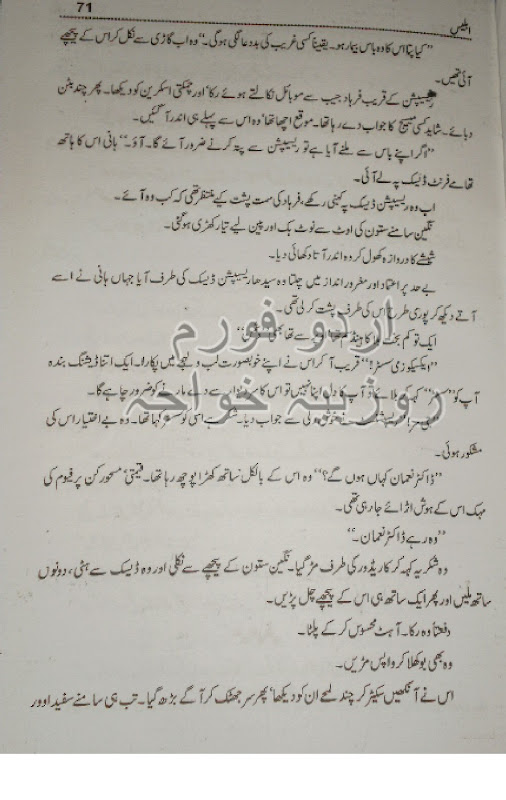 71
ابلیس
”کیا پتا اس کا وہ باس بیمار ہو۔ یقیناً کسی غریب کی بددعا لگی ہوگی۔“ وہ اب گاڑی سے نکل کر اس کے پیچھے
آئی تھیں۔
ریسیپشن کے قریب فرہاد جیب سے موبائل نکالتے ہوئے رکا‘ اور چمکتی اسکرین کو دیکھا۔ پھر چند بٹن
دبائے۔ شاید کسی میسج کا جواب دے رہا تھا۔ موقع اچھا تھا‘ وہ اس سے پہلے ہی اندر آ گئیں۔
”اگر اپنے باس سے ملنے آیا ہے تو ریسیپشن سے پتہ کرنے ضرور آئے گا۔ آؤ۔“ ہانی اس کا ہاتھ
تھامے فرنٹ ڈیسک پہ لے آئی۔
اب وہ ریسیپشن ڈیسک پہ کہنی رکھے، فرہاد کی سمت پشت کیے منتظر تھی کہ کب وہ آئے۔
نگین سامنے ستون کی اوٹ سے نوٹ بک اور پین لیے تیار کھڑی ہوگئی۔
شیشے کا دروازہ کھول کر وہ اندر آتا دکھائی دیا۔
بے حد پر اعتماد اور مغرور انداز میں چلتا وہ سیدھا ریسیپشن ڈیسک کی طرف آیا جہاں ہانی نے اسے
آتے دیکھ کر پوری طرح اس کی طرف پشت کر لی تھی۔
ایک تو کم بخت تھا
”ایکسکیوزمی سسٹر!“ قریب آ کر اس نے اپنے خوبصورت لب و لہجے میں پکارا۔ ایک اتنا ڈیشنگ بندہ
آپ کو ”سسٹر“ کہہ کر بلائے تو آپ کا دل اپنا نہیں تو اس کا سر دیوار سے دے مارنے کو ضرور چاہے گا۔
سے جواب دیا۔ شکر ہے اسی کو سسٹر کہا تھا۔ وہ بے اختیار اس کی
مشکور ہوئی۔
”ڈاکٹر نعمان کہاں ہوں گے؟“ وہ اس کے بالکل ساتھ کھڑا پوچھ رہا تھا۔ قیمتی‘ مسحور کن پرفیوم کی
مہک اس کے ہوش اڑائے جا رہی تھی۔
”وہ رہے ڈاکٹر نعمان۔“
وہ شکریہ کہہ کر کاریڈور کی طرف مڑ گیا۔ نگین ستون کے پیچھے سے نکلی اور وہ ڈیسک سے ہٹی، دونوں
ساتھ ملیں اور پھر ایک ساتھ ہی اس کے پیچھے چل پڑیں۔
دفعتاً وہ رکا۔ آہٹ محسوس کر کے پلٹا۔
وہ بھی بوکھلا کر واپس مڑیں۔
اس نے آنکھیں سکیڑ کر چند لمحے ان کو دیکھا‘ پھر سر جھٹک کر آگے بڑھ گیا۔ تب ہی سامنے سفید اوور
اردو فورم
روزینہ خواجہ